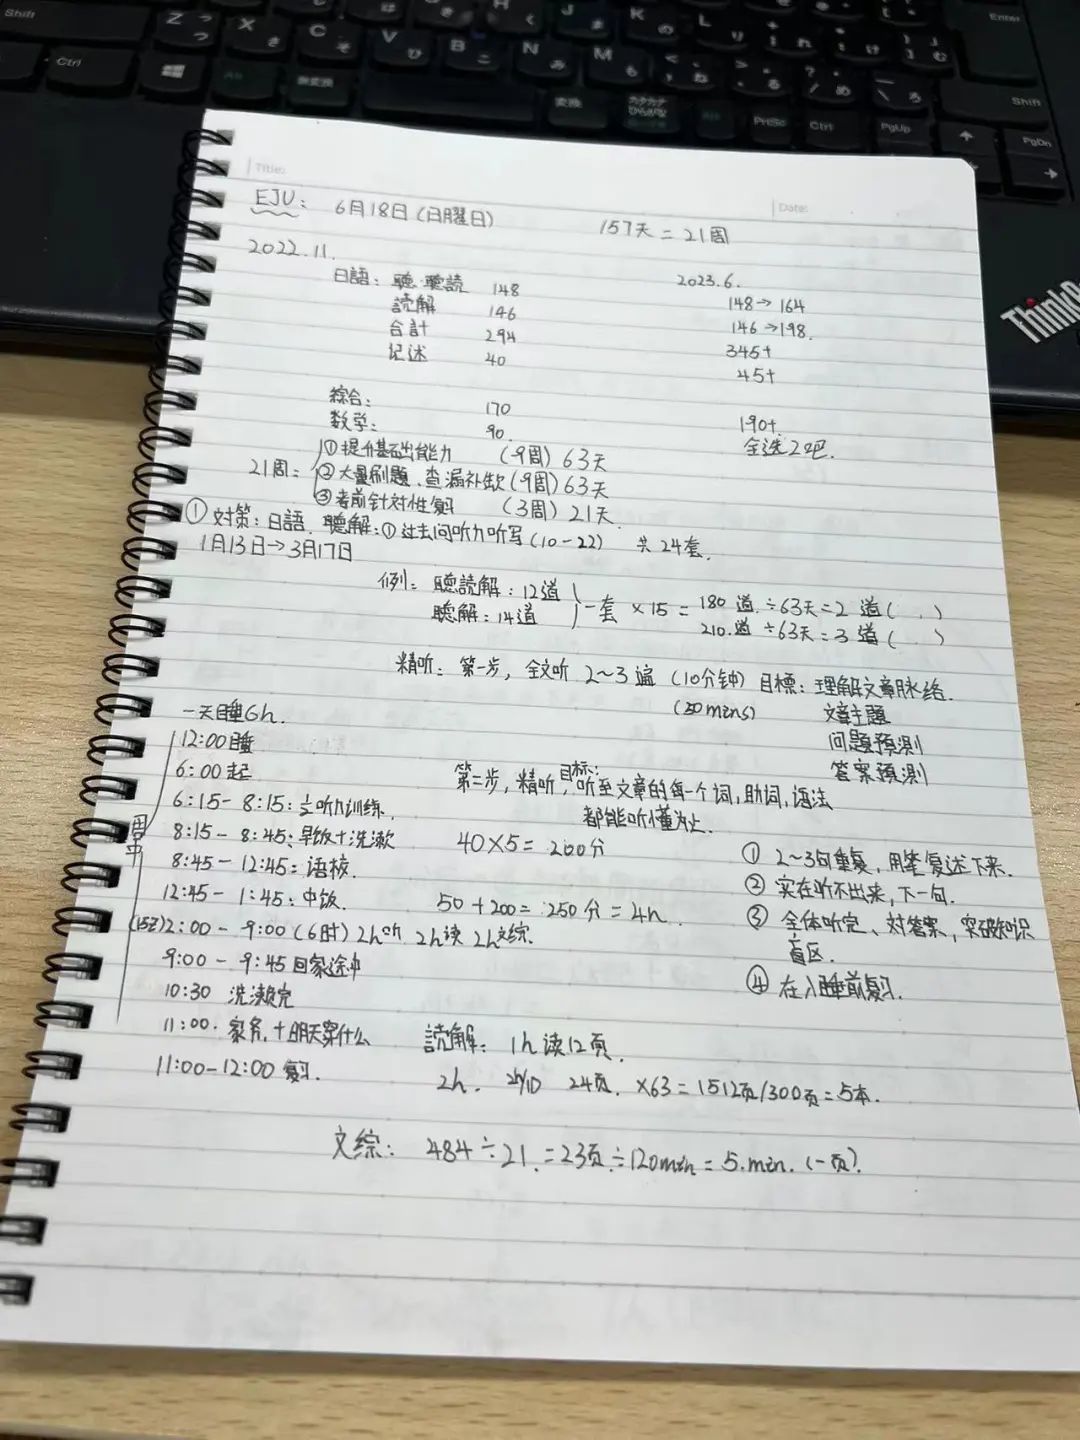 Shift
Z
X
C
V
B
N
M
J
K
L
Enter
Ctrl
Alt
無変換
変換
カタカナ
ひらがな
Alt
PrtSc
Ctrl
PgUp
PgDn
Shift
Title:
Date:
EJU: 6月18日(日曜日) 157天=21周
2022.11. 2023.6.
日語: 聴・聴読 148 148→164
読解 146 146→198.
合計 294 345+
记述 40 45+
綜合: 170 190+.
数学: 90. 全选2吧.
21周: ①提升基础能力 (9周) 63天
②大量刷題、查漏补缺(9周) 63天
③考前针对性复习 (3周) 21天.
①対策: 日語. 聴解: ①过去问听力听写(10-22) 共24套.
1月13日→3月17日
例: 聴読解: 12道 一套 ×15 = 180道÷63天=2道( )
聴解: 14道 210.道÷63天=3道( )
精听: 第一步, 全文听 2~3遍 (10分钟) 目標: 理解文章脉络.
(50mins) 文章主题
问题预測
答案预測
第二步, 精听, 目标: 听至文章的每一个词, 助词, 语法
都能听懂为止.
40×5=200分
50+200=250分=4h
① 2~3句重复, 用笔复述下来.
② 实在听不出来, 下一句.
③ 全体听完、対答案, 突破知识
盲区.
④ 在入睡前复习.
一天睡6h.
12:00睡
6:00起
6:15-8:15: 听力训练.
8:15-8:45: 早饭+洗漱
8:45-12:45: 语校.
12:45-1:45: 中饭.
2:00-9:00(6时) 2h听 2h读 2h文综.
9:00-9:45回家途中
10:30 洗漱完
11:00. 家务.+明天穿什么
11:00-12:00 复习.
読解: 1h读12页.
2h. 24页. ×63=1512页/300页=5本.
文综: 484÷21.=23页÷120min=5.min.(一页).